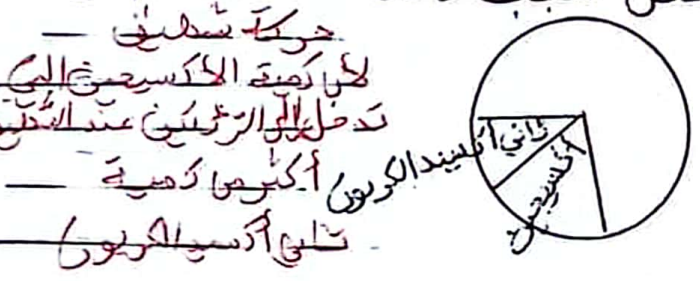 حركة شهيق
لأن كمية الأكسجين التي
تدخل إلى الرئتين عند التنفس
أكثر من كمية
ثاني أكسيد الكربون
ثاني أكسيد الكربون
أكسجين